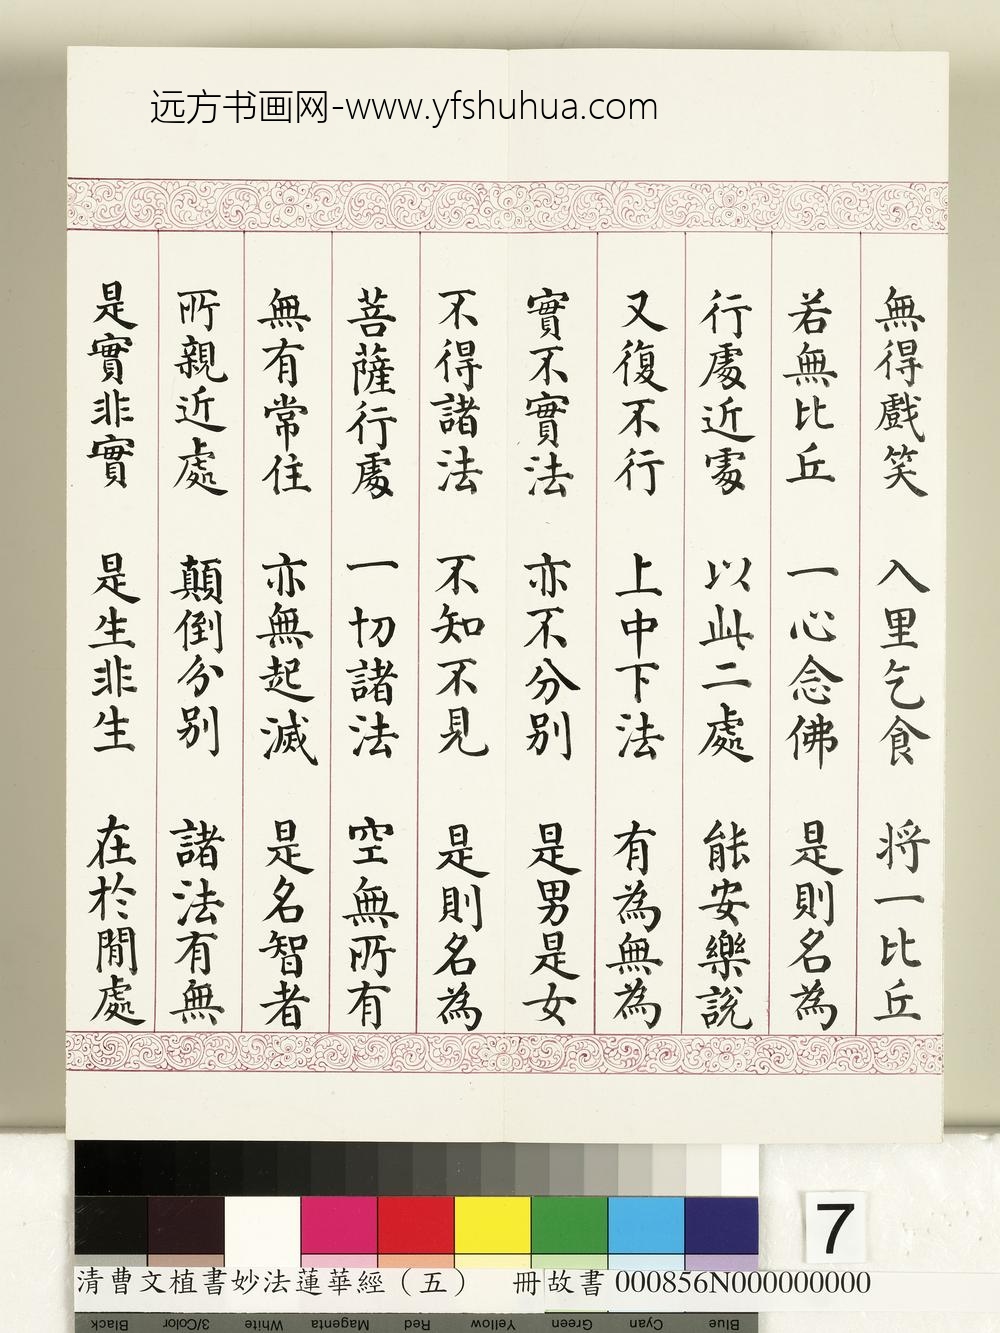 远方书画网-www.yfshuhua.com
無得戲笑 入里乞食 将一比丘
若無比丘 一心念佛 是則名為
行處近處 以此二處 能安樂說
又復不行 上中下法 有為無為
實不實法 亦不分别 是男是女
不得諸法 不知不見 是則名為
菩薩行處 一切諸法 空無所有
無有常住 亦無起滅 是名智者
所親近處 顛倒分别 諸法有無
是實非實 是生非生 在於閒處
7
清曹文植書妙法蓮華經（五） 冊故書000856N000000000
Black 3/Color White Magenta Red Yellow Green Cyan Blue